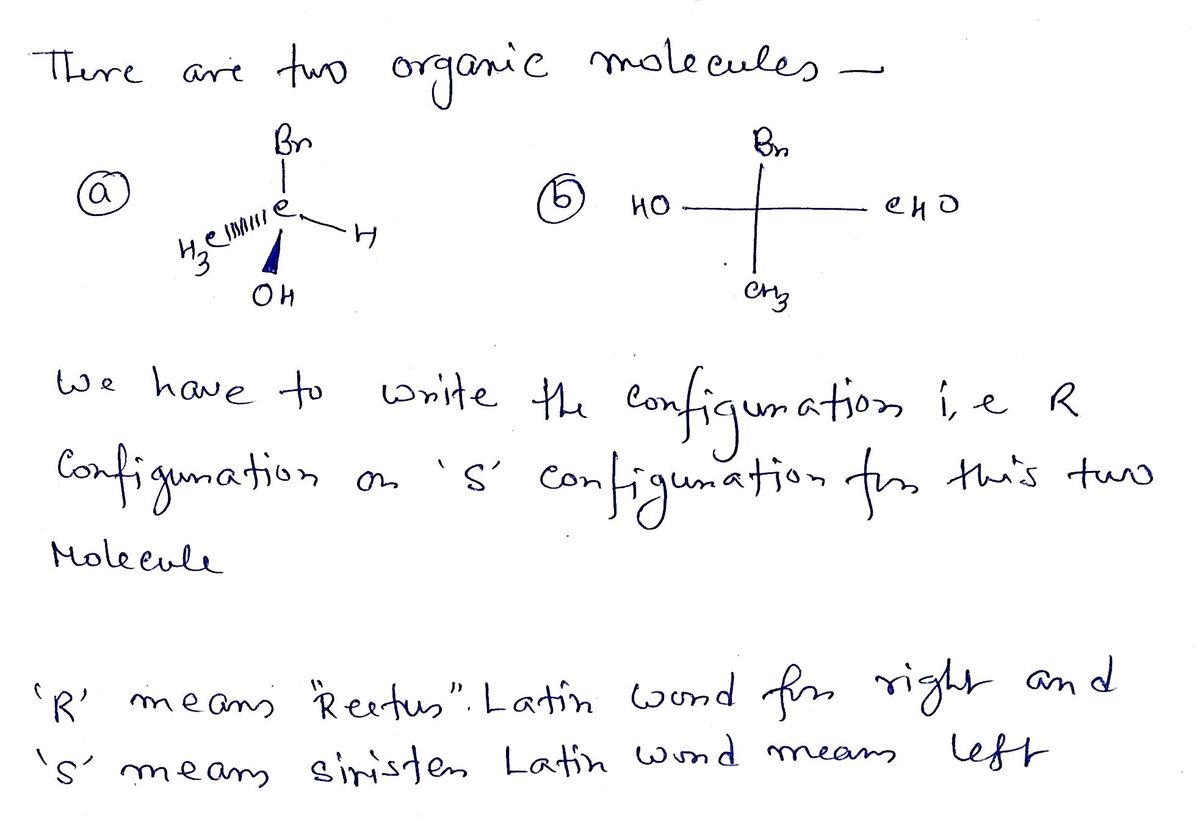 There are two organic molecules –
Br
Br
(a)
C
(b)
HO
CHO
H3C
H
OH
CH3
We have to write the configuration i,e R
Configuration or 'S' configuration for this two
Molecule
'R' means "Rectus". Latin word for right and
'S' means sinister Latin word means left